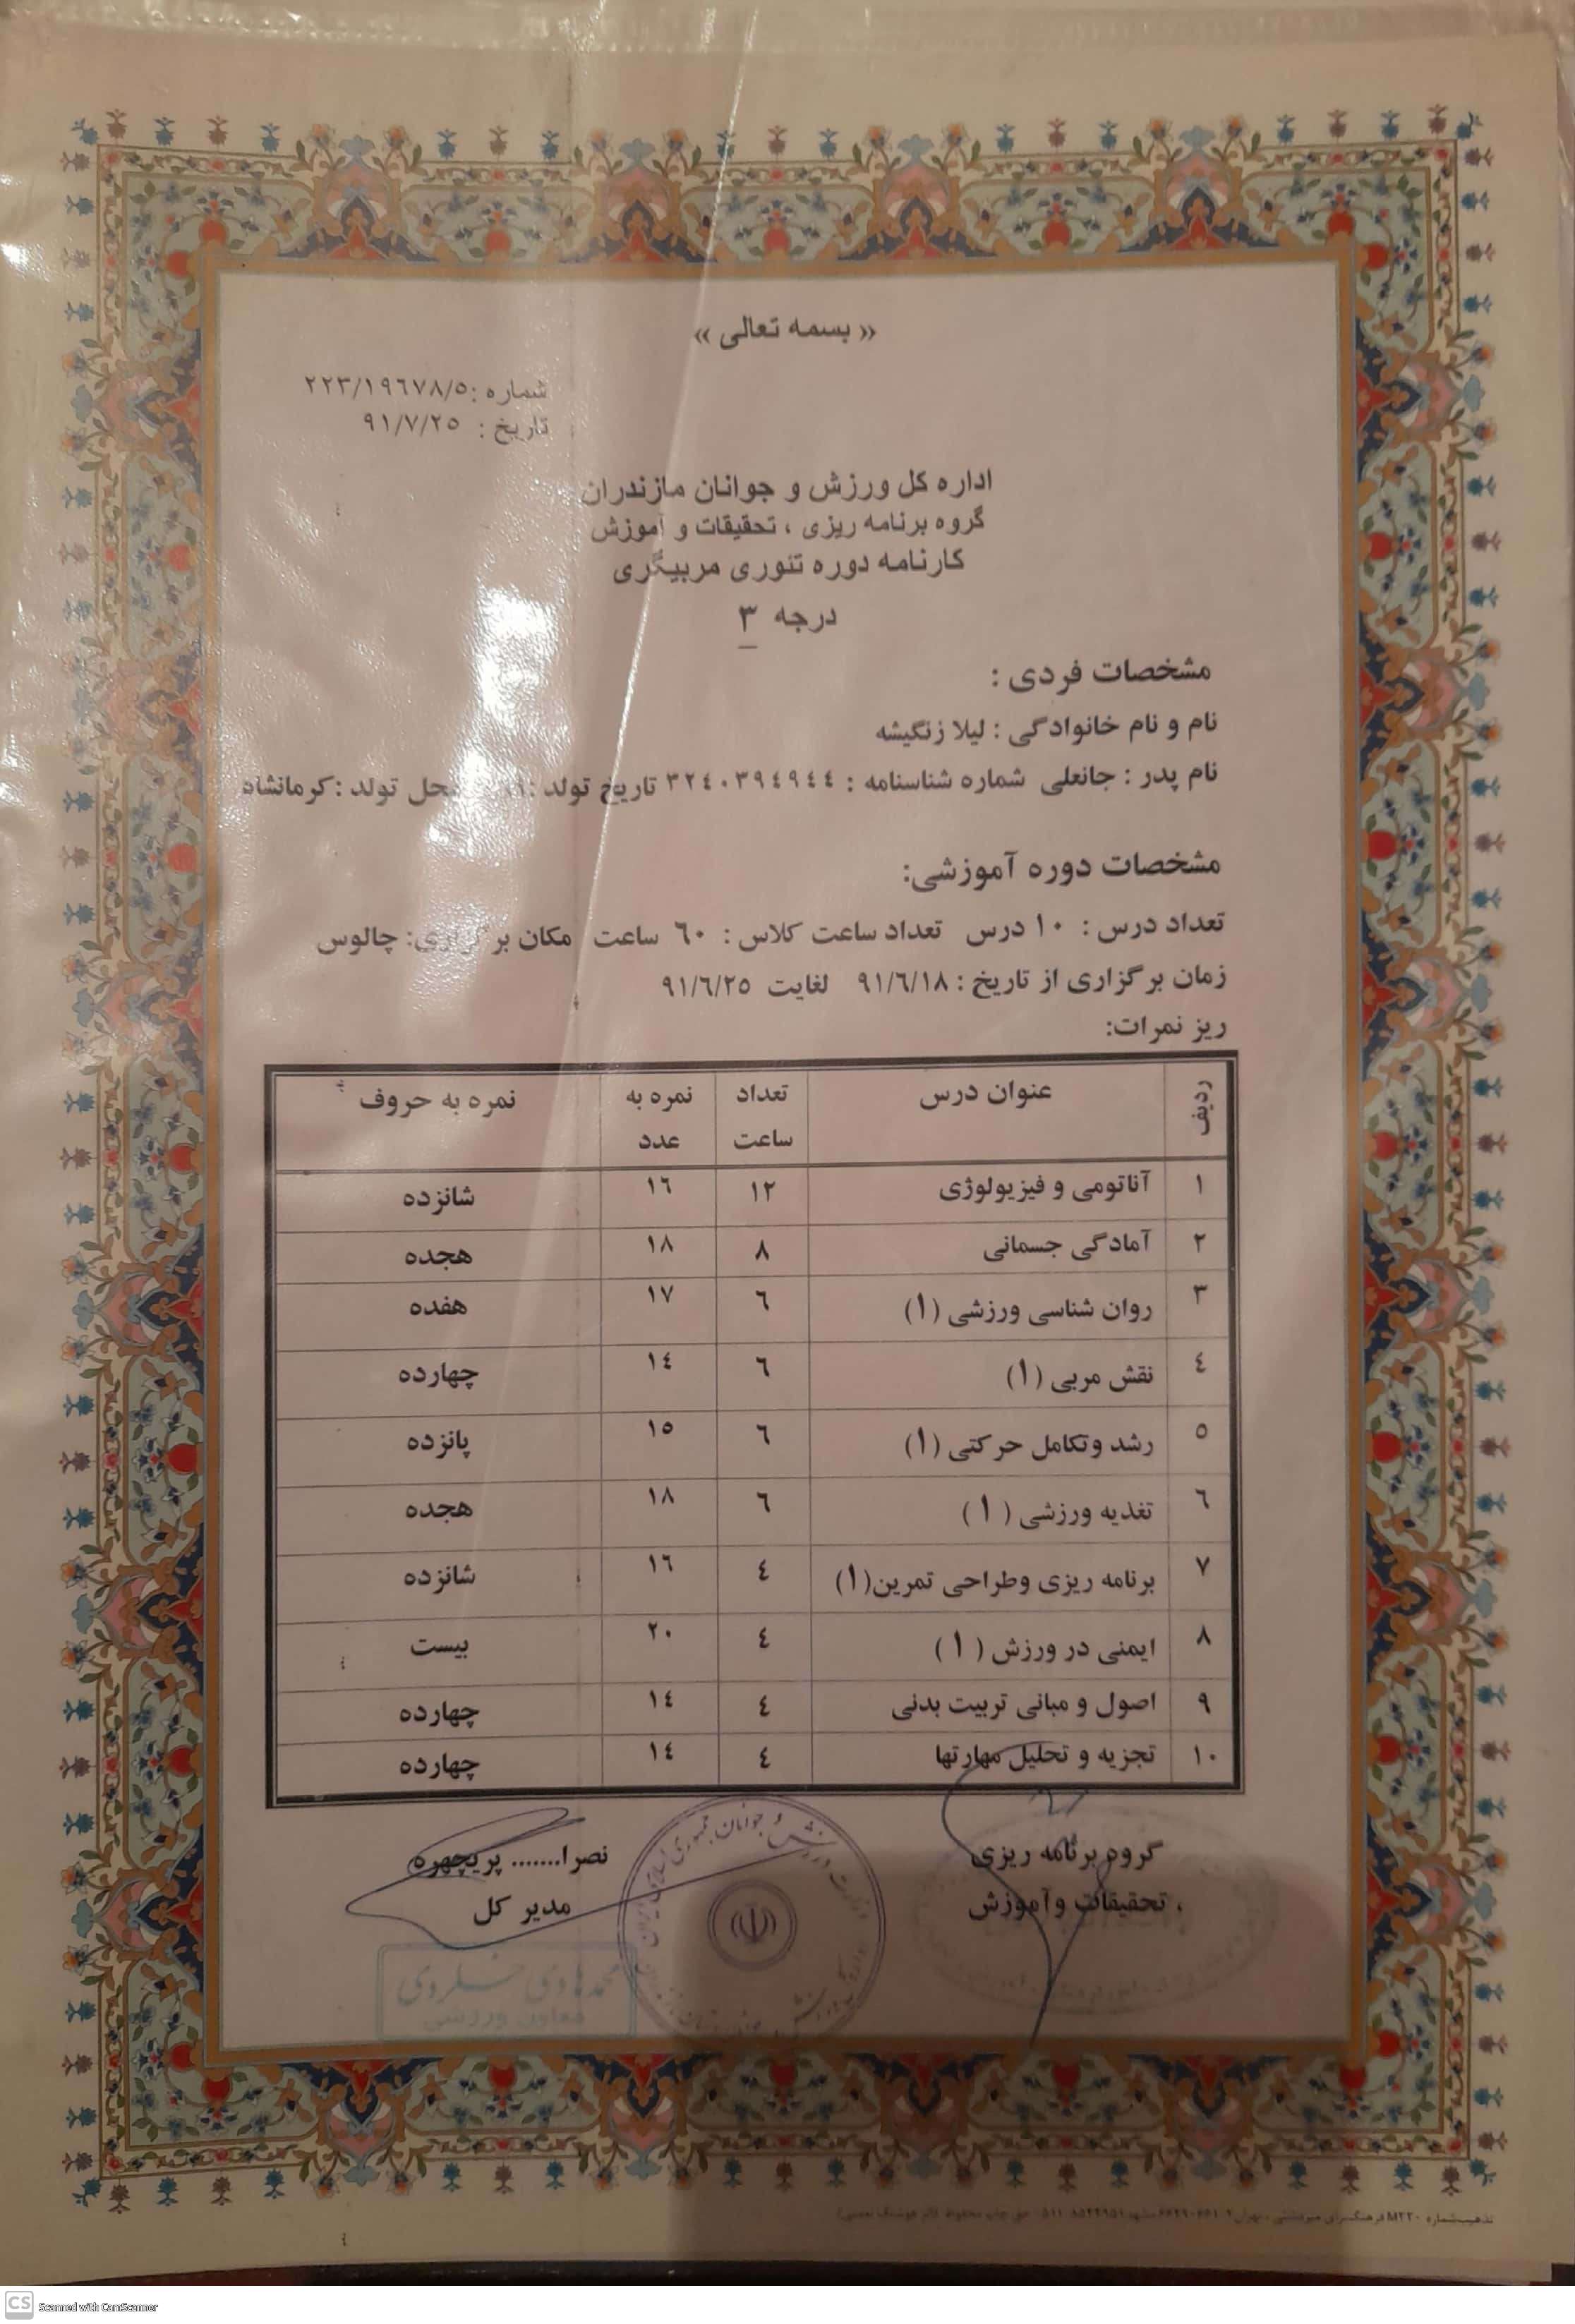 « بسمه تعالی »
شماره :۲۲۳/۱۹٦۷۸/۵
تاریخ : ۹۱/۷/۲۵
اداره کل ورزش و جوانان مازندران
گروه برنامه ریزی ، تحقیقات و آموزش
کارنامه دوره تئوری مربیگری
درجه ۳
مشخصات فردی :
نام و نام خانوادگی : لیلا زنگیشه
نام پدر : جانعلی شماره شناسنامه : ۳۲٤۰۳۹٤۹٤٤ تاریخ تولد : محل تولد :کرمانشاه
مشخصات دوره آموزشی:
تعداد درس : ۱۰ درس تعداد ساعت کلاس : ٦۰ ساعت مکان برگزاری: چالوس
زمان برگزاری از تاریخ : ۹۱/٦/۱۸ لغایت ۹۱/٦/۲۵
ریز نمرات:
ردیف عنوان درس تعداد ساعت نمره به عدد نمره به حروف
۱ آناتومی و فیزیولوژی ۱۲ ۱٦ شانزده
۲ آمادگی جسمانی ۸ ۱۸ هجده
۳ روان شناسی ورزشی (۱) ٦ ۱۷ هفده
٤ نقش مربی (۱) ٦ ۱٤ چهارده
۵ رشد وتکامل حرکتی (۱) ٦ ۱۵ پانزده
٦ تغذیه ورزشی ( ۱ ) ٦ ۱۸ هجده
۷ برنامه ریزی وطراحی تمرین(۱) ٤ ۱٦ شانزده
۸ ایمنی در ورزش ( ۱ ) ٤ ۲۰ بیست
۹ اصول و مبانی تربیت بدنی ٤ ۱٤ چهارده
۱۰ تجزیه و تحلیل مهارتها ٤ ۱٤ چهارده
گروه برنامه ریزی
، تحقیقات وآموزش
نصرا....... پریچهره
مدیر کل
محمدهادی خسروی
معاون ورزشی
CS Scanned with CamScanner